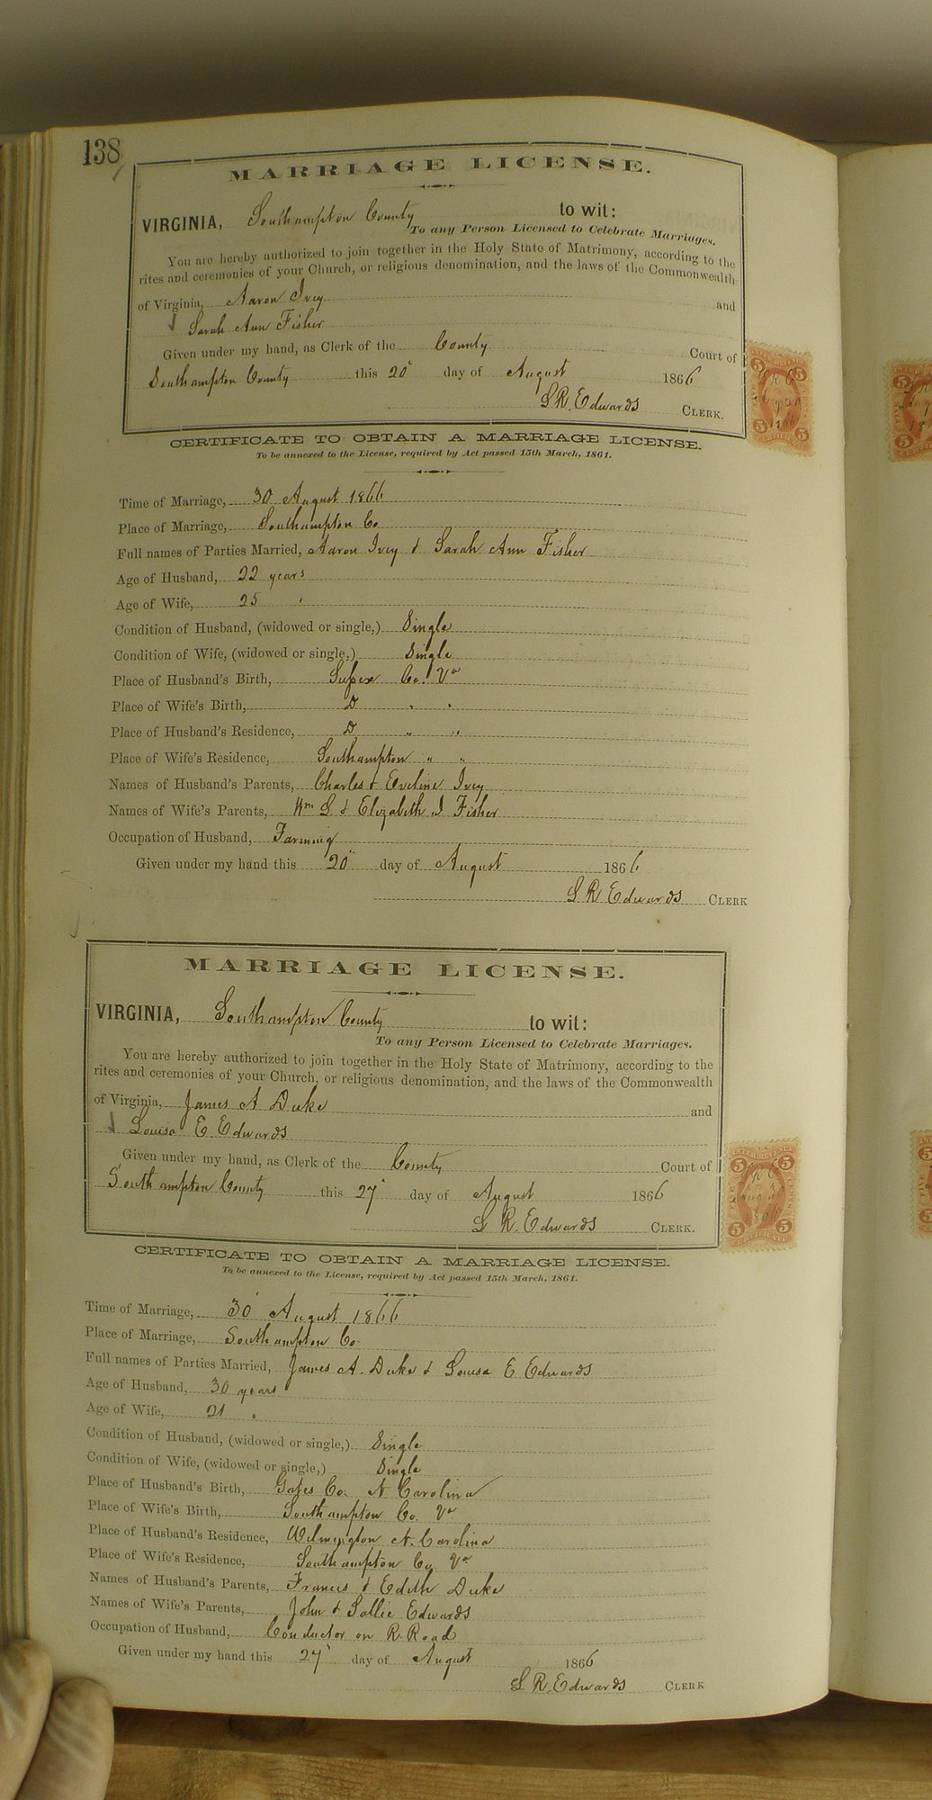 138
MARRIAGE LICENSE.
VIRGINIA, Southampton County to wit:
To any Person Licensed to Celebrate Marriages.
You are hereby authorized to join together in the Holy State of Matrimony, according to the
rites and ceremonies of your Church, or religious denomination, and the laws of the Commonwealth
of Virginia, Aaron Ivey and
Sarah Ann Fisher
Given under my hand, as Clerk of the County Court of
Southampton County this 20" day of August 1866
L R. Edwards CLERK.
CERTIFICATE TO OBTAIN A MARRIAGE LICENSE.
To be annexed to the License, required by Act passed 15th March, 1861.
Time of Marriage, 30 August 1866
Place of Marriage, Southampton Co
Full names of Parties Married, Aaron Ivey & Sarah Ann Fisher
Age of Husband, 22 years
Age of Wife, 25 "
Condition of Husband, (widowed or single,) Single
Condition of Wife, (widowed or single,) Single
Place of Husband's Birth, Sussex Co. Va
Place of Wife's Birth, Do " "
Place of Husband's Residence, Do " "
Place of Wife's Residence, Southampton " "
Names of Husband's Parents, Charles & Eveline Ivey
Names of Wife's Parents, Wm S & Elizabeth J Fisher
Occupation of Husband, Farming
Given under my hand this 20" day of August 1866
L R Edwards CLERK
MARRIAGE LICENSE.
VIRGINIA, Southampton County to wit:
To any Person Licensed to Celebrate Marriages.
You are hereby authorized to join together in the Holy State of Matrimony, according to the
rites and ceremonies of your Church, or religious denomination, and the laws of the Commonwealth
of Virginia, James A Duke and
Louisa E Edwards
Given under my hand, as Clerk of the County Court of
Southampton County this 27" day of August 1866
L R. Edwards CLERK.
CERTIFICATE TO OBTAIN A MARRIAGE LICENSE.
To be annexed to the License, required by Act passed 15th March, 1861.
Time of Marriage, 30 August 1866
Place of Marriage, Southampton Co
Full names of Parties Married, James A. Duke & Louisa E Edwards
Age of Husband, 30 years
Age of Wife, 21 "
Condition of Husband, (widowed or single,) Single
Condition of Wife, (widowed or single,) Single
Place of Husband's Birth, Gates Co. N Carolina
Place of Wife's Birth, Southampton Co. Va
Place of Husband's Residence, Wilmington N. Carolina
Place of Wife's Residence, Southampton Co. Va
Names of Husband's Parents, Francis & Edith Duke
Names of Wife's Parents, John & Sallie Edwards
Occupation of Husband, Conductor on R. Road
Given under my hand this 27" day of August 1866
L R. Edwards CLERK